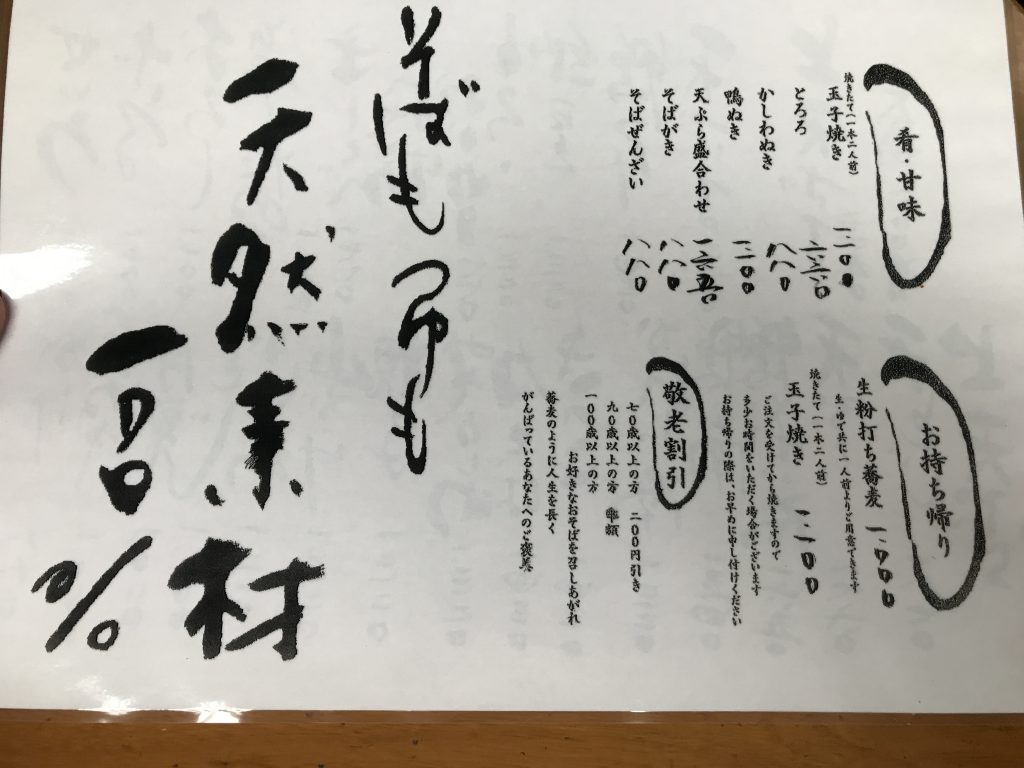 肴・甘味
焼きたて(一本二人前)
玉子焼き 一二〇〇
とろろ
かしわぬき 八八〇
鴨ぬき 一二〇〇
天ぷら盛合わせ
そばがき 八八〇
そばぜんざい 八八〇
お持ち帰り
生粉打ち蕎麦 一、一〇〇
生・ゆで共に一人前よりご用意できます
焼きたて(一本二人前)
玉子焼き 一二〇〇
ご注文を受けてから焼きますので
多少お時間をいただく場合がございます
お持ち帰りの際は、お早めに申し付けください
敬老割引
七〇歳以上の方 二〇〇円引き
九〇歳以上の方 半額
一〇〇歳以上の方
お好きなおそばを召しあがれ
蕎麦のように人生を長く
がんばっているあなたへのご褒美
そばもつゆも
天然素材
一〇〇%